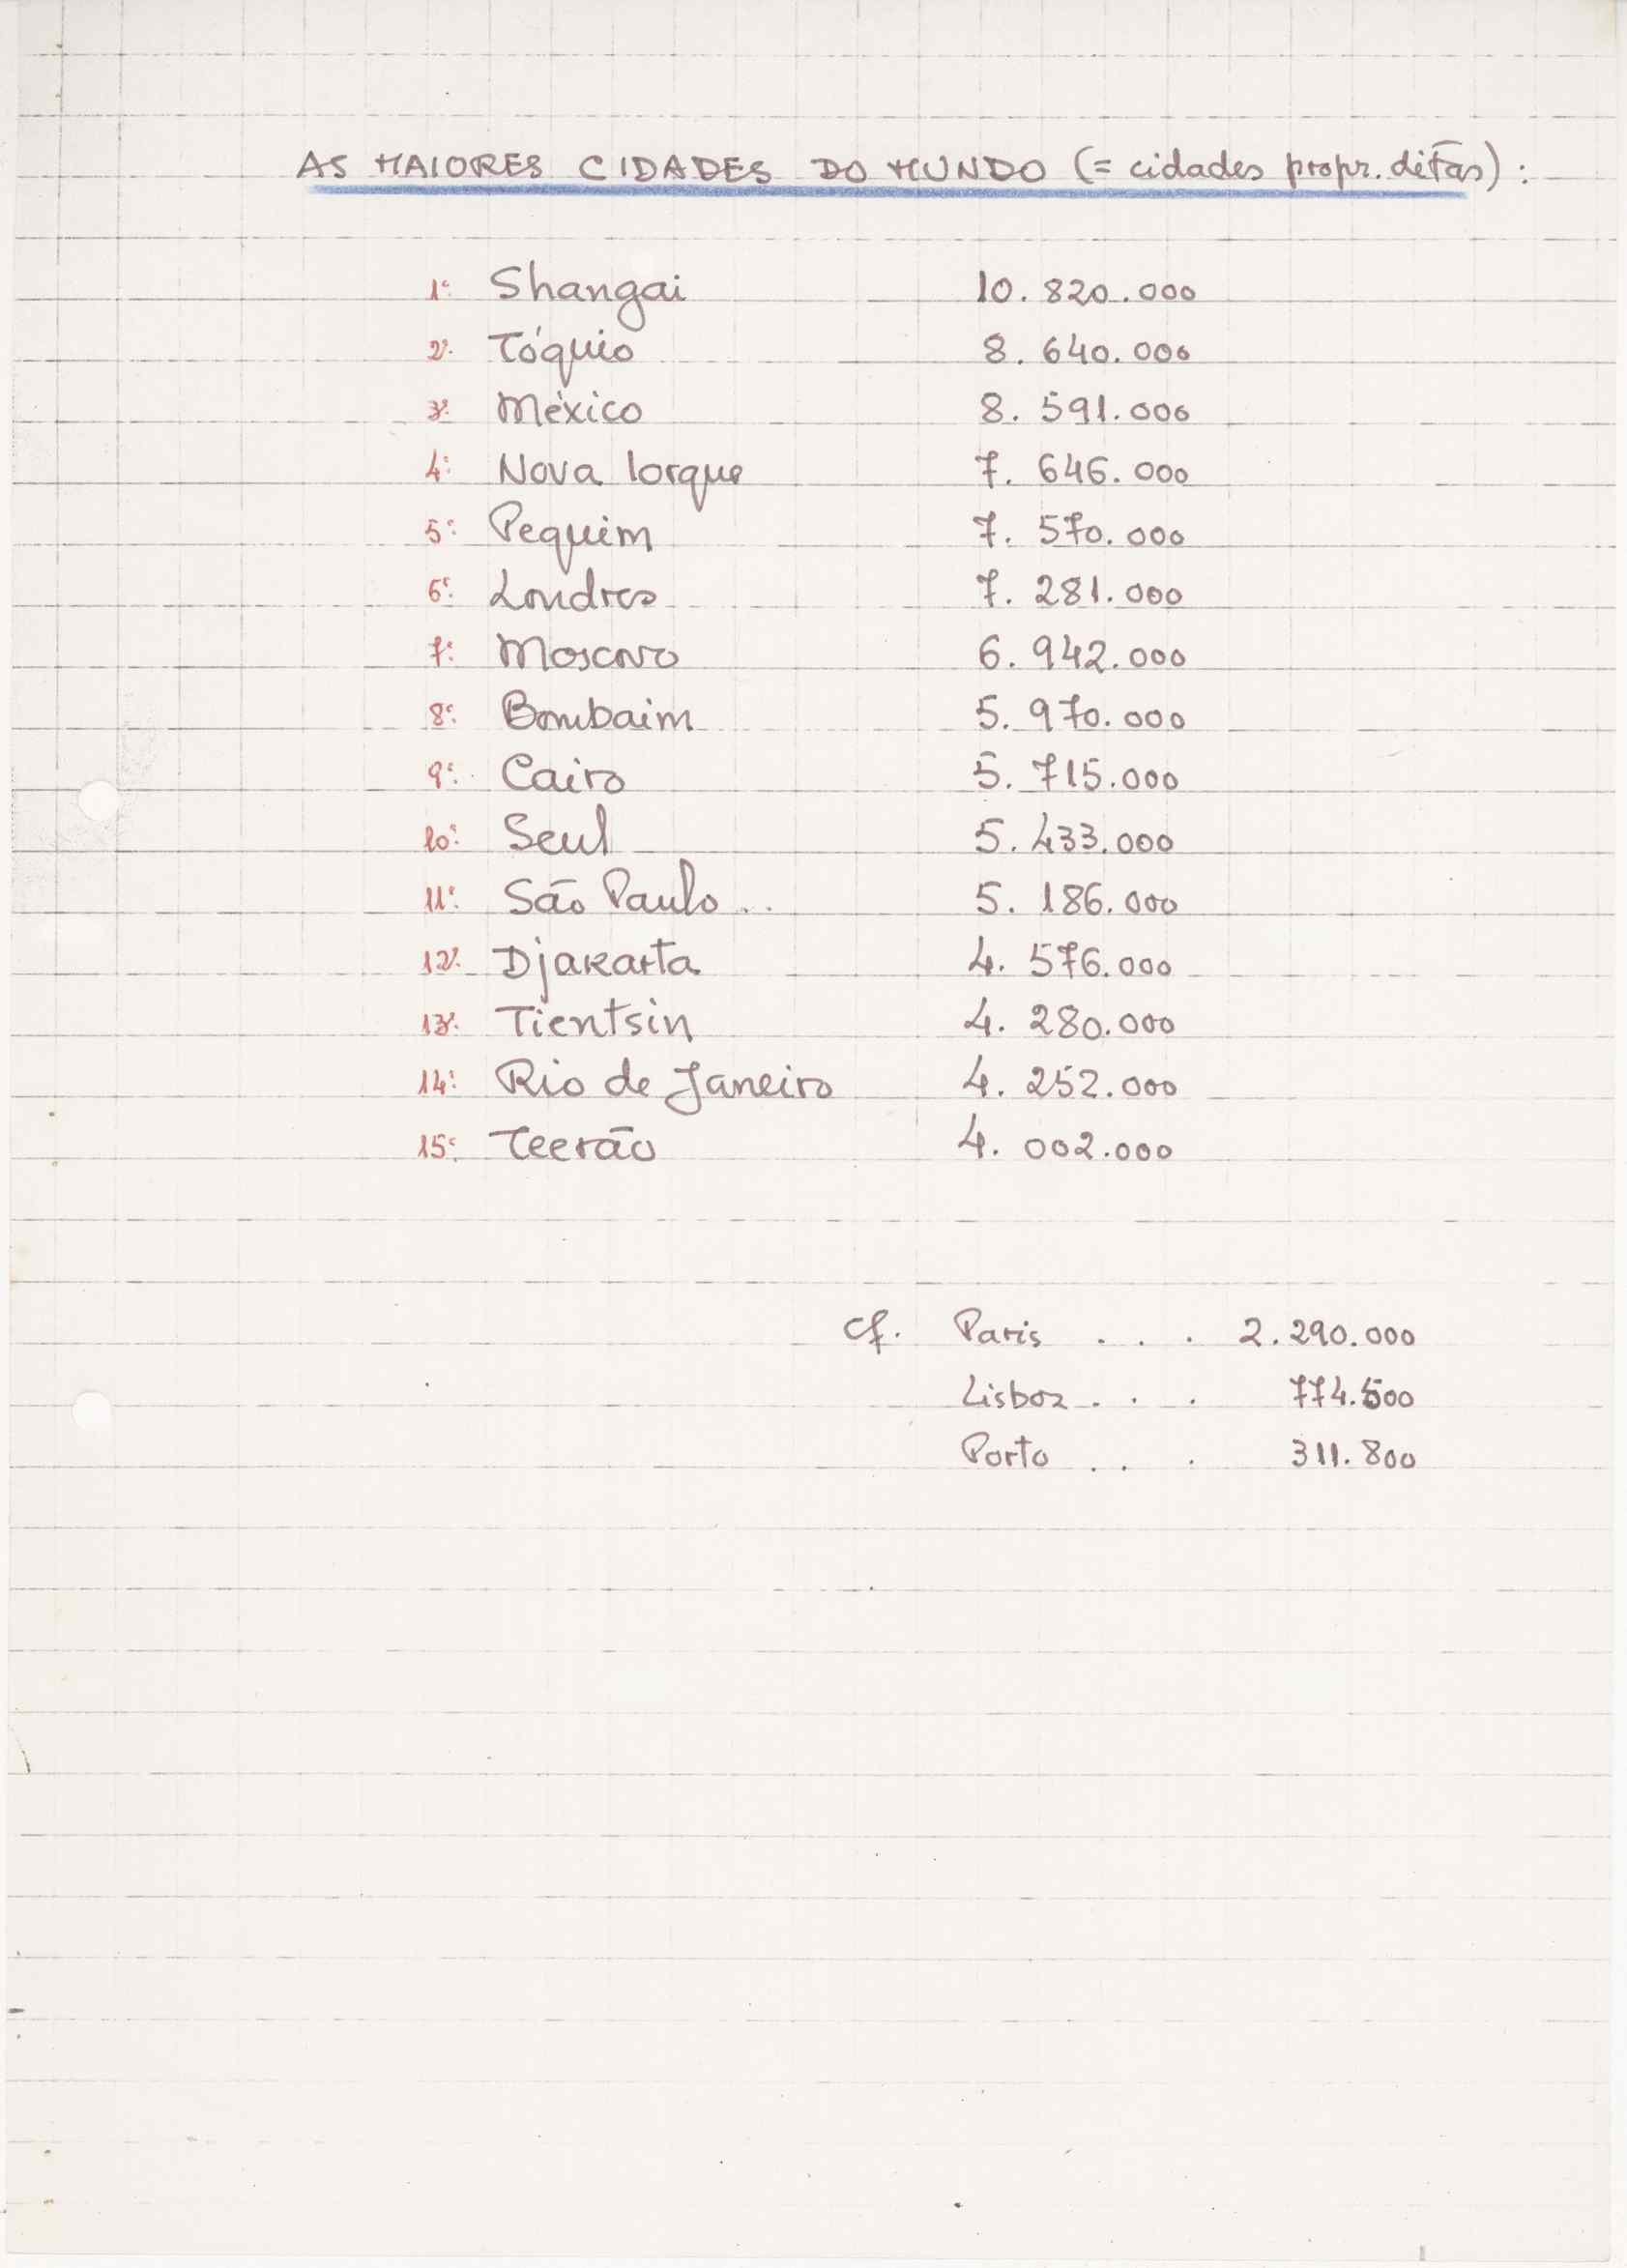 AS MAIORES CIDADES DO MUNDO (= cidades propr. ditas) :
1ª Shangai 10.820.000
2ª Tóquio 8.640.000
3ª México 8.591.000
4ª Nova Iorque 7.646.000
5ª Pequim 7.570.000
6ª Londres 7.281.000
7ª Moscovo 6.942.000
8ª Bombaim 5.970.000
9ª Cairo 5.715.000
10ª Seul 5.433.000
11ª São Paulo .. 5.186.000
12ª Djakarta 4.576.000
13ª Tientsin 4.280.000
14ª Rio de Janeiro 4.252.000
15ª Teerão 4.002.000
Cf. Paris . . . 2.290.000
Lisboa . . . 774.500
Porto . . . 311.800